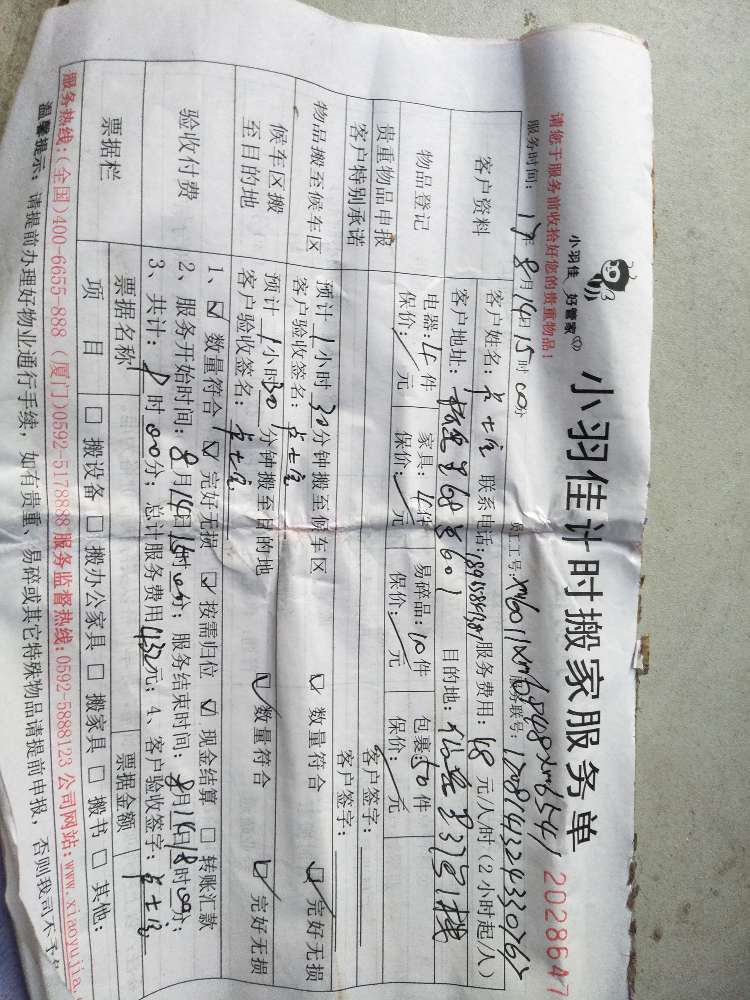 小羽佳 好管家
小羽佳计时搬家服务单
2028647
请您于服务前收拾好您的贵重物品!
服务时间: 17年8月14日15时00分
员工号: 服务联号:
客户资料
客户姓名: 联系电话: 服务费用: 48元/人/时(2小时起/人)
客户地址: 68号601 目的地:
物品登记
电器: 4件 家具: 4件 易碎品: 10件 包裹: 50件
保价: 元 保价: 元 保价: 元 保价: 元
贵重物品申报
客户签字:
客户特别承诺
客户签字:
物品搬至候车区
预计1小时30分钟搬至候车区 ☑ 数量符合 ☑ 完好无损
客户验收签名:
候车区搬至目的地
预计1小时30分钟搬至目的地 ☑ 数量符合 ☑ 完好无损
客户验收签名:
验收付费
1、☑ 数量符合 ☑ 完好无损 ☑ 按需归位 ☑ 现金结算 □ 转账汇款
2、服务开始时间: 8月14日15时00分; 服务结束时间: 8月14日18时00分;
3、共计: 时00分; 总计服务费用432元; 4、客户验收签字:
票据栏
票据名称 票据金额
项 目 □ 搬设备 □ 搬办公家具 □ 搬家具 □ 搬书 □ 其他:
服务热线:(全国)400-6655-888 (厦门)0592-5178888 服务监督热线:0592-5888123 公司网站:www.xiaoyujia.
温馨提示: 请提前办理好物业通行手续, 如有贵重、易碎或其它特殊物品请提前申报, 否则我司不予